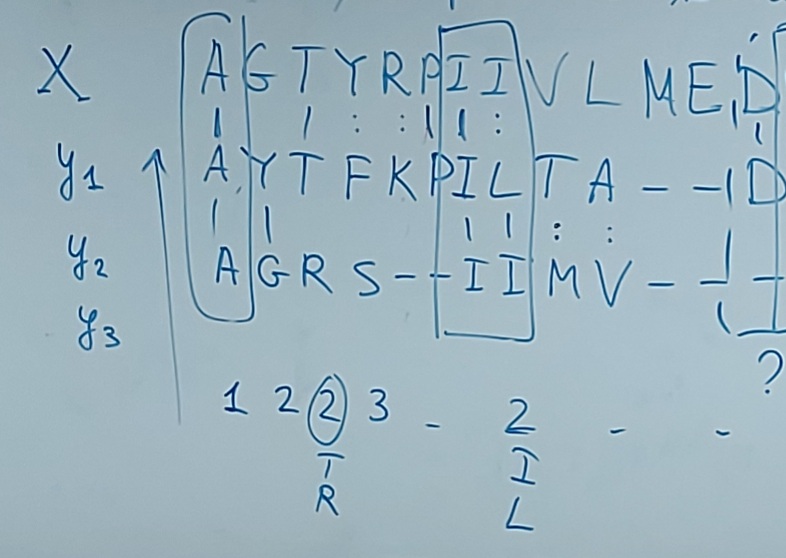 X A G T Y R P I I V L M E D
| | : : | | : |
y1 A Y T F K P I L T A - - D
| | | | : :
y2 A G R S - - I I M V - - -
y3
?
1 2 2 3 - 2 - -
T I
R L